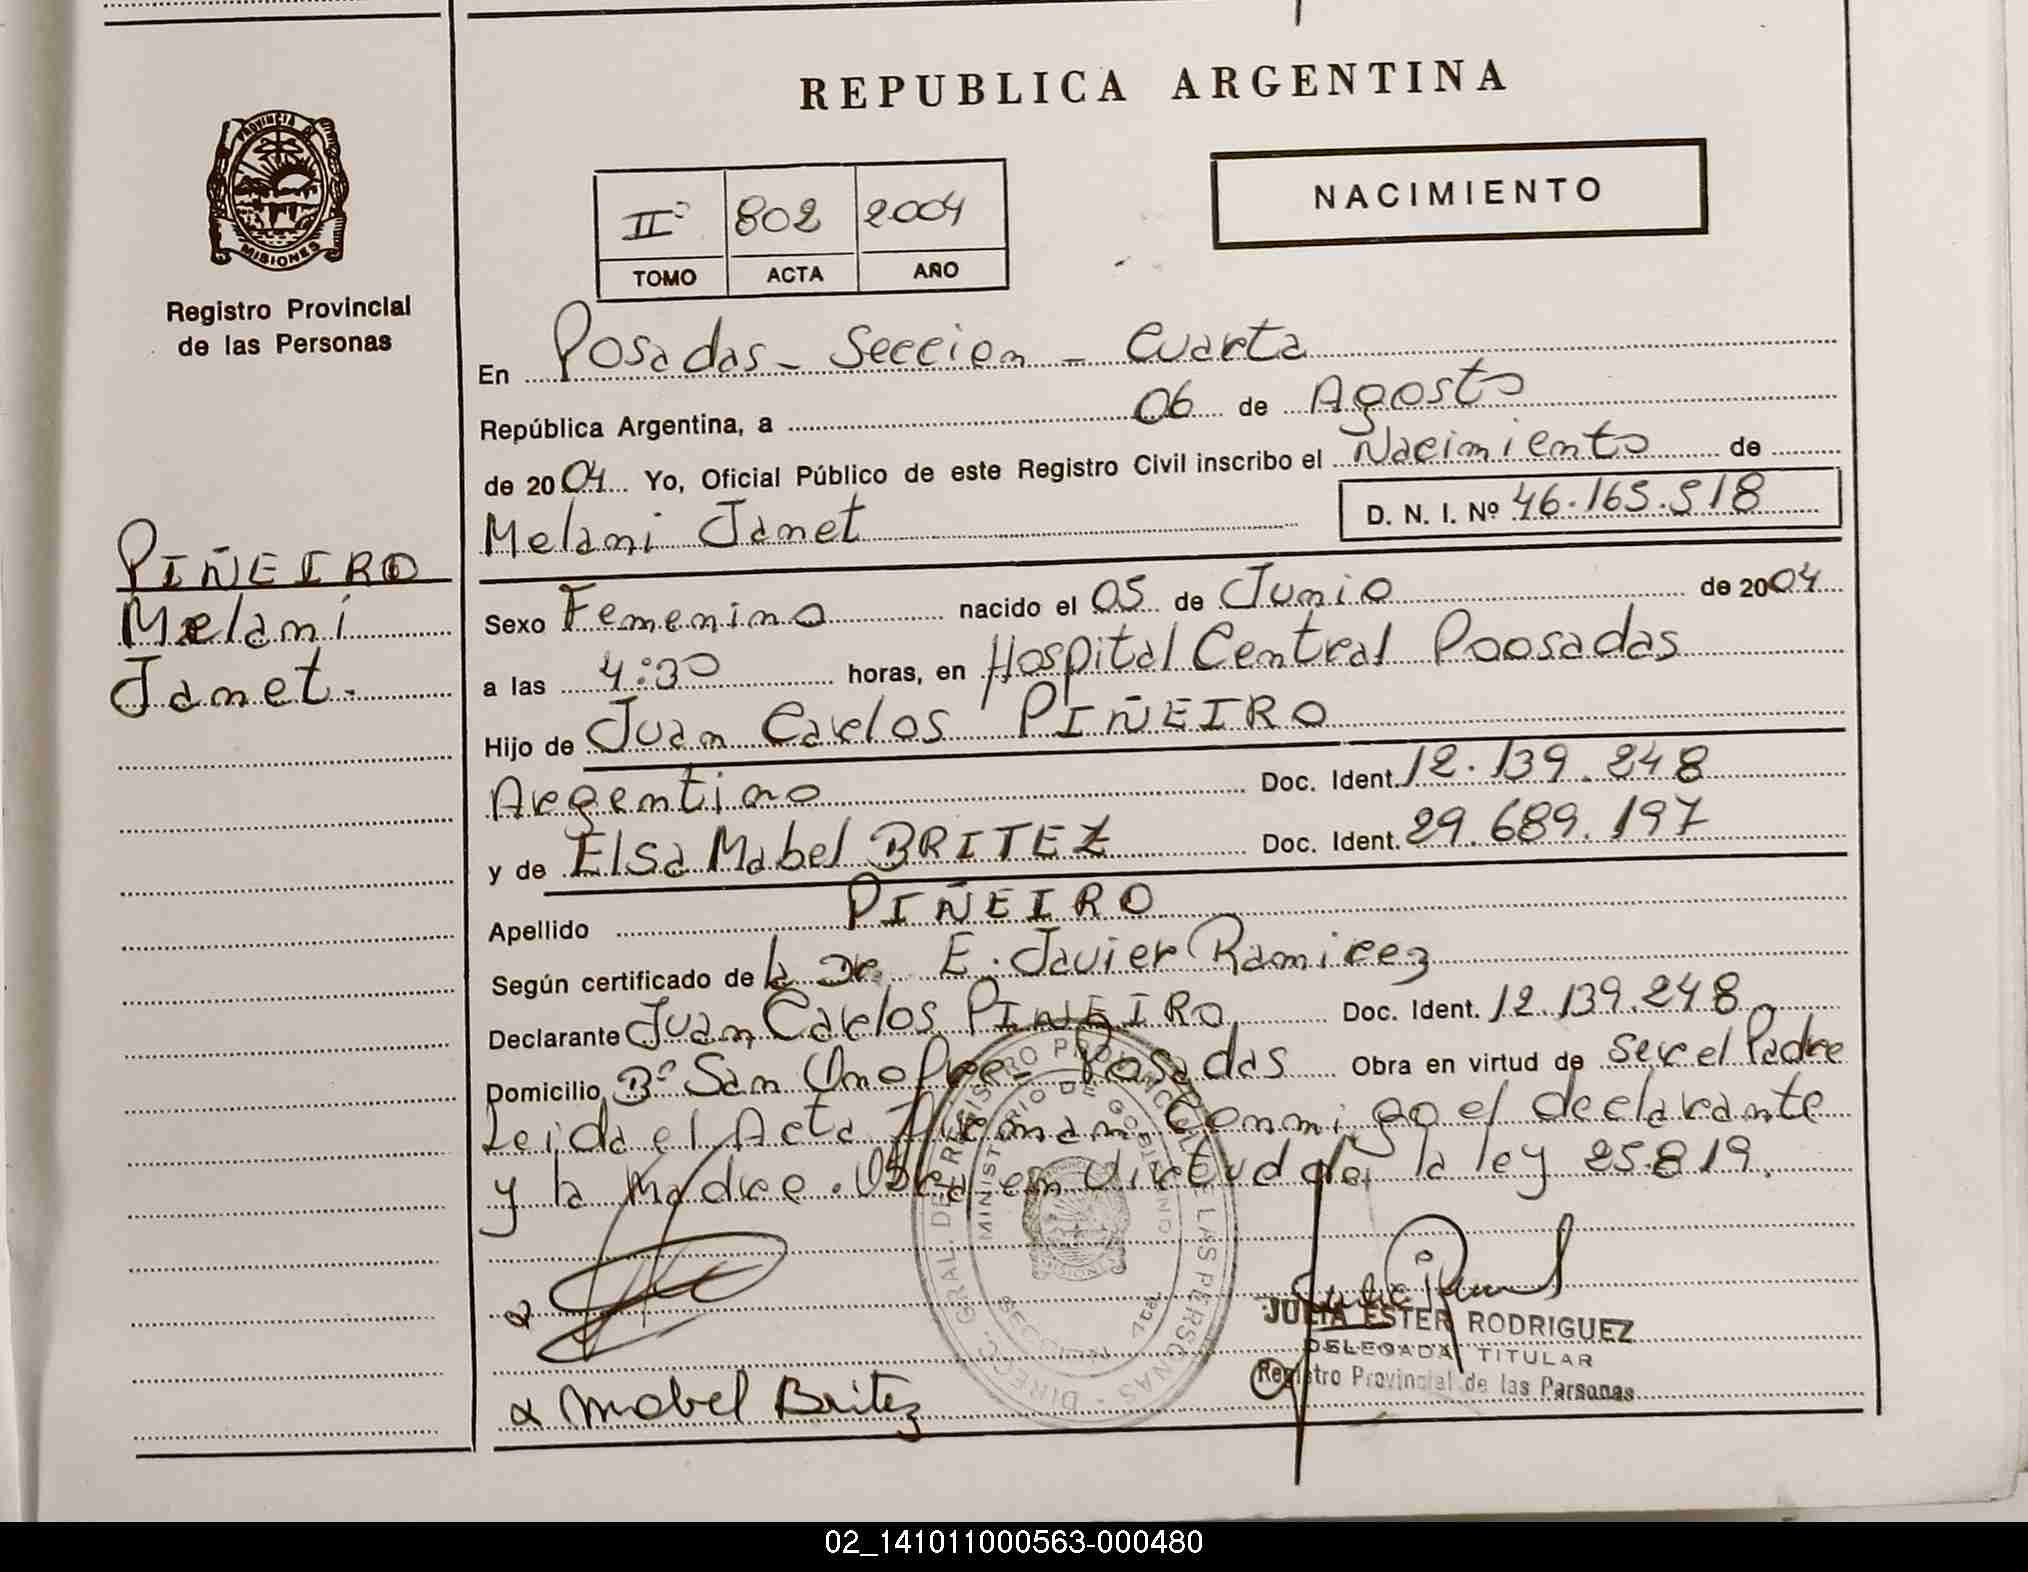 REPUBLICA ARGENTINA
PROVINCIA DE
MISIONES
Registro Provincial
de las Personas
IIº 802 2004
TOMO ACTA AÑO
NACIMIENTO
En Posadas - Seccion - Cuarta
República Argentina, a 06 de Agosto
de 2004 Yo, Oficial Público de este Registro Civil inscribo el Nacimiento de
Melani Janet D. N. I. Nº 46.165.518
PIÑEIRO
Melani
Janet.-
Sexo Femenino nacido el 05 de Junio de 2004
a las 4:30 horas, en Hospital Central Poosadas
Hijo de Juan Carlos PIÑEIRO
Argentino Doc. Ident. 12.139.248
y de Elsa Mabel BRITEZ Doc. Ident. 29.689.197
Apellido PIÑEIRO
Según certificado de la Dr. E. Javier Ramirez
Declarante Juan Carlos PIÑEIRO Doc. Ident. 12.139.248
Domicilio Bº San Onofre - Posadas Obra en virtud de Ser el Padre
Leida el Acta Firman Conmigo el declarante
y la Madre. Obra en virtud de la ley 25.819.
DIRECC. GRAL. DE REGISTRO PROVINCIAL DE LAS PERSONAS
MINISTERIO DE GOBIERNO
MISIONES
SECCION 4ta
JULIA ESTER RODRIGUEZ
DELEGADA TITULAR
Registro Provincial de las Personas
Mabel Britez
02_141011000563-000480